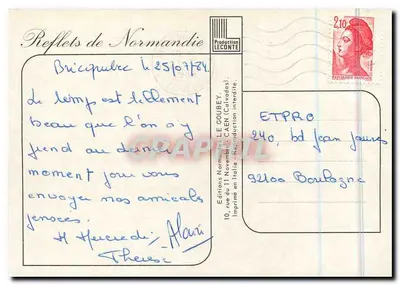 Reflets de Normandie
Production
LECONTE
2,10
Bricquebec le 25/07/84.
Le temps est tellement
beau que l'on a
au dernier
moment pour vous
envoyer nos amicales
pensées.
Alain
Thérèse
Editions Normandes LE GOUBEY
10, rue du 11 Novembre, CAEN (Calvados)
Imprimé en Italie - Reproduction interdite
ETPRO
240, bd jean jaurès
92100 Boulogne